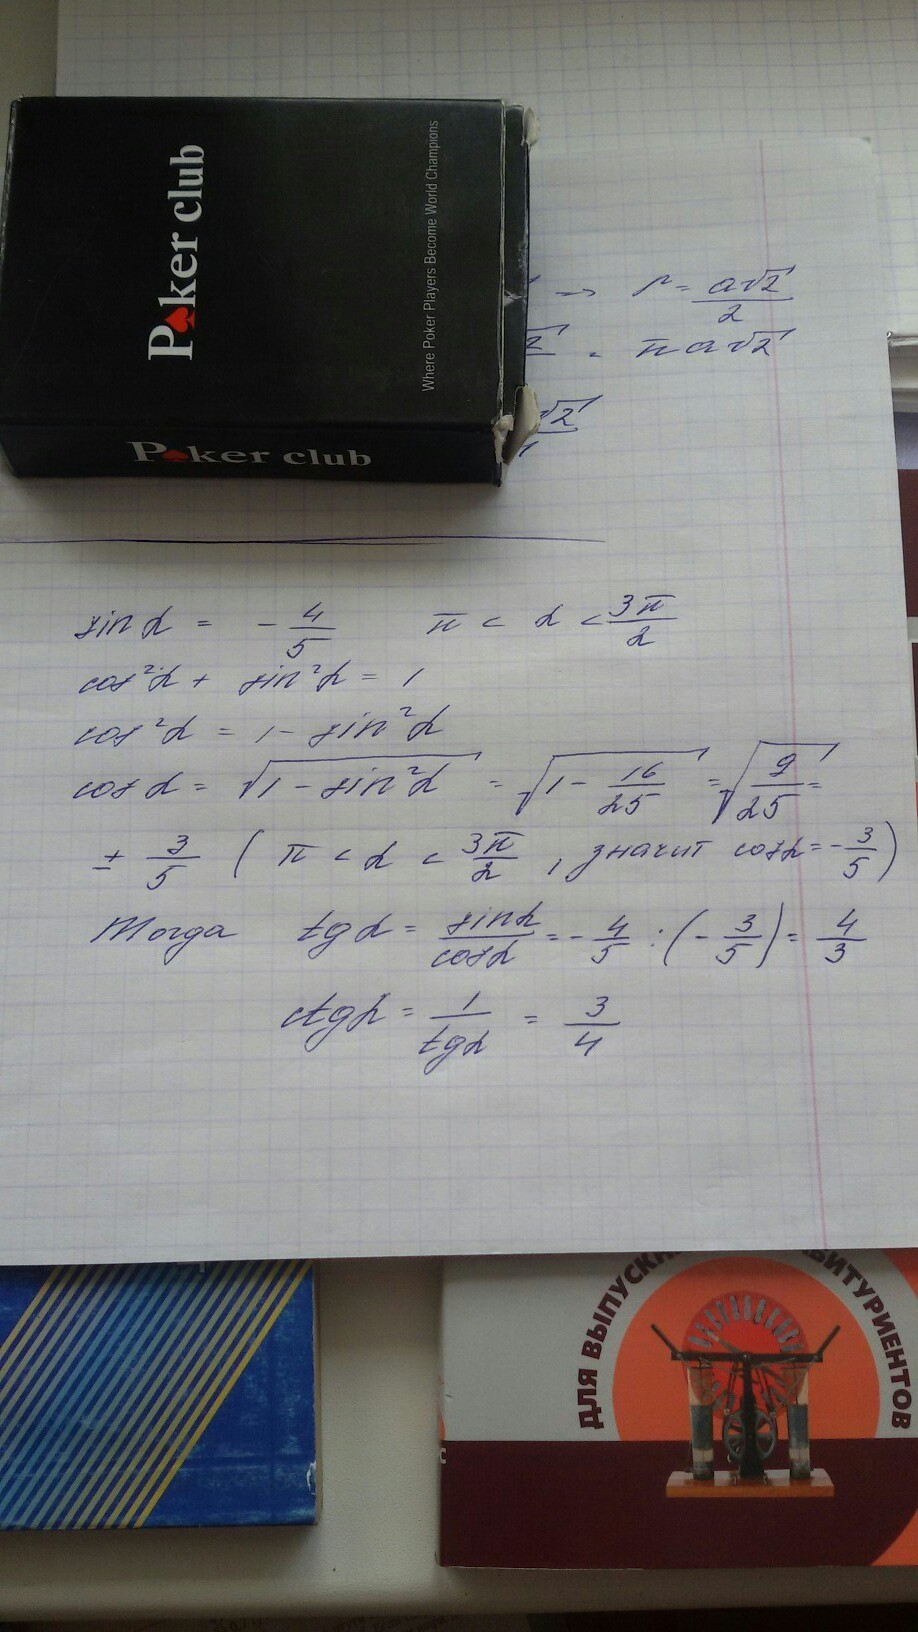 Poker club
Where Poker Players Become World Champions
Poker club
→ r = a√2/2
= πa√2
√2
sin α = -4/5 π < α < 3π/2
cos²α + sin²α = 1
cos²α = 1 - sin²α
cos α = √(1 - sin²α) = √(1 - 16/25) = √(9/25) =
± 3/5 ( π < α < 3π/2, значит cos α = -3/5)
Тогда tg α = sin α/cos α = -4/5 : (-3/5) = 4/3
ctg α = 1/tg α = 3/4
ДЛЯ ВЫПУСКН
БИТУРИЕНТОВ